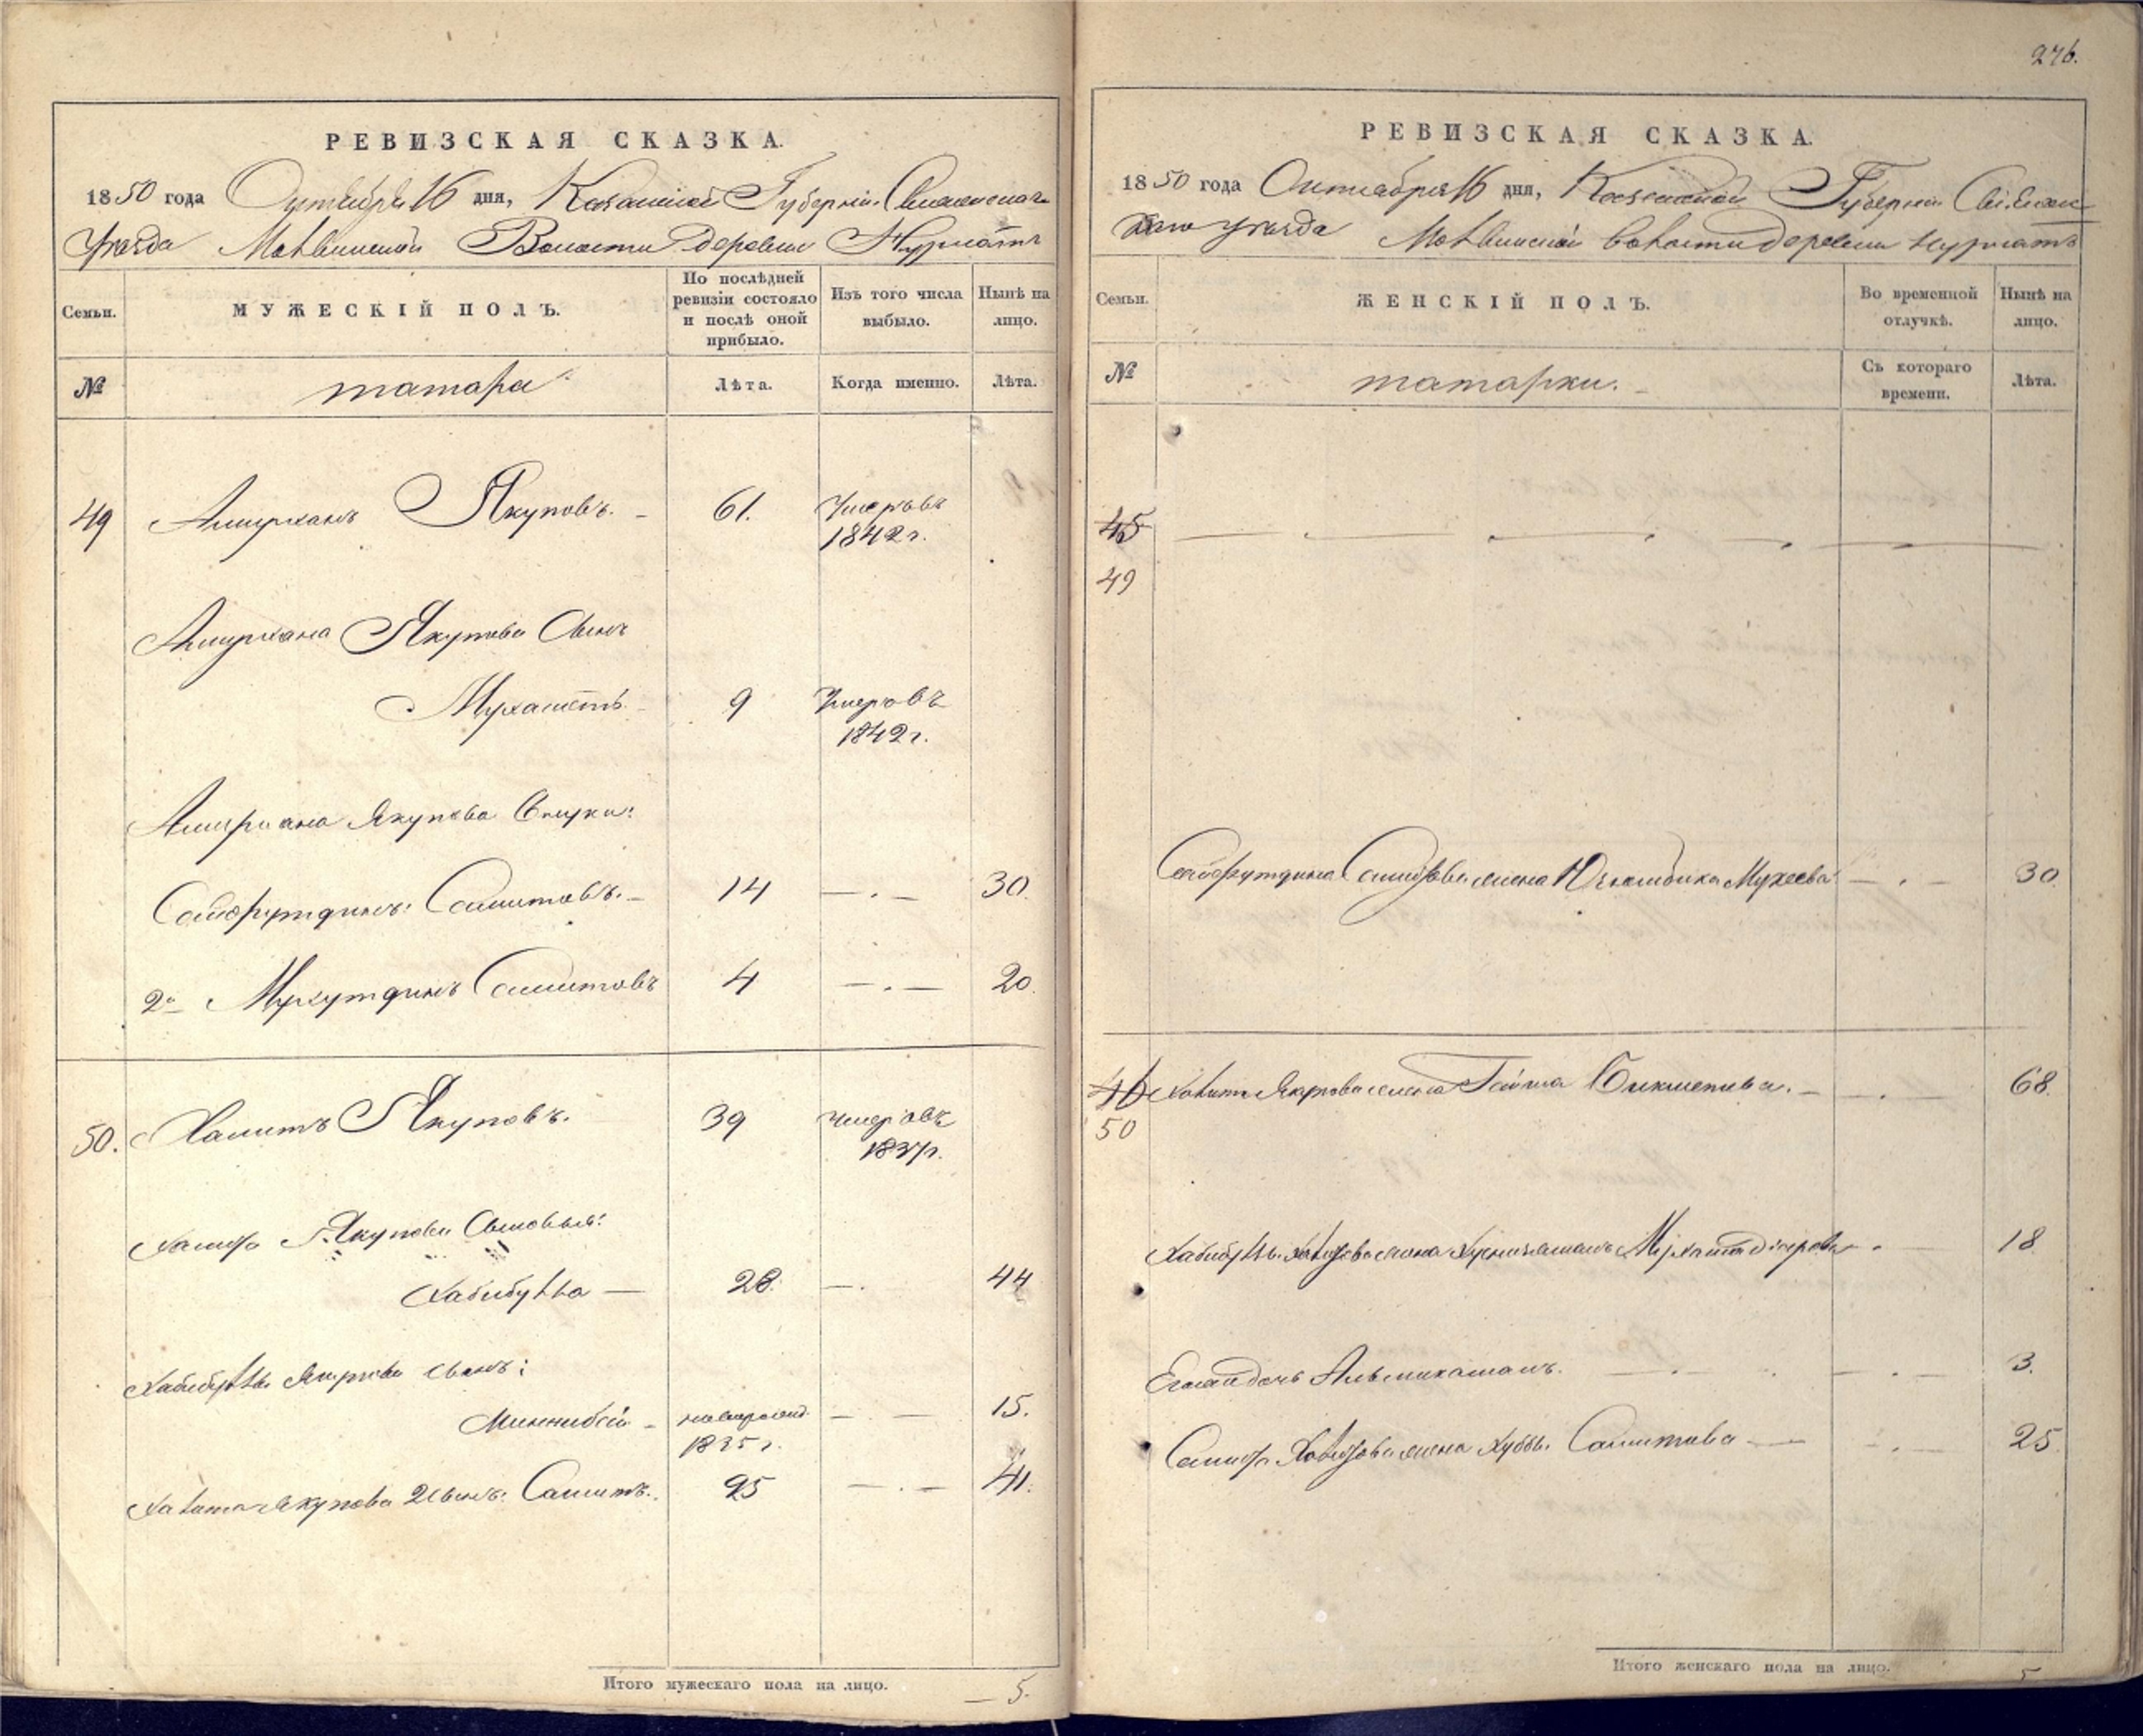 276.
РЕВИЗСКАЯ СКАЗКА.
1850 года Октября 16 дня, Казанской Губернии Свіяжскаго
Уѣзда Молвинской Волости деревни Нурлатъ
Семьи. МУЖЕСКІЙ ПОЛЪ. По послѣдней ревизіи состояло и послѣ оной прибыло. Изъ того числа выбыло. Нынѣ на лицо.
№ татара Лѣта. Когда именно. Лѣта.
49 Амирханъ Якуповъ. 61. Умеръ въ
1842 г.
Амирхана Якупова Сынъ
Мухаметъ 9 Умеръ въ
1842 г.
Амирхана Якупова Внуки:
Сайфутдинъ Самитовъ. 14 — . — 30.
2й Самитовъ 4 — . — 20.
50. Халитъ Якуповъ. 39 Умеръ въ
1837 г.
Якупова Сыновья:
Хабибулла — 28. — . 44
Хабибуллы Якупова сынъ:
Миннибай новорожд. — . — 15.
1835 г.
Халита Якупова 2й сынъ: Самитъ. 25 — . — 41.
Итого мужескаго пола на лицо. — 5.
РЕВИЗСКАЯ СКАЗКА.
1850 года Октября 16 дня, Казанской Губерніи Свіяж
скаго Уѣзда Молвинской Волости деревни Нурлатъ
Семьи. ЖЕНСКІЙ ПОЛЪ. Во временной отлучкѣ. Нынѣ на лицо.
№ татарки. Съ котораго времени. Лѣта.
45
49
Сайфутдина жена Мухеева — . — 30.
46 Халита Якупова жена Бикметева. — — . — 68.
50
Хабибуллы жена 18
Ея дочь — . — 3.
жена Самитова — — . — 25.
Итого женскаго пола на лицо. 5